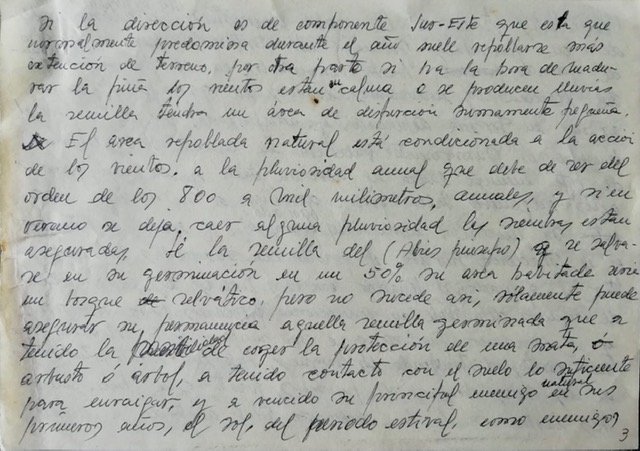 Si la dirección es de componente Sur-Este que esta que
normalmente predomina durante el año suele repoblarse más
extención de terreno, por otra parte si ha la hora de madu-
rar la piña los vientos estan en calma o se producen lluvias
la semilla tendra un área de dispurción sumamente pequeña.
El area repoblada natural está condicionada a la acción
de los vientos. a la pluviosidad anual que debe de ser del
orden de los 800 a mil milimetros, annales, y si en
verano se deja caer alguna pluviosidad las siembras estan
aseguradas Si la semilla del (Abies pinsapo) se salva-
se en su germinación en un 50% su area habitada seria
un bosque selvático, pero no sucede asi, sólamente puede
asegurar su permanencia aquella semilla germinada que a
tenido la de coger la protección de una mata, ó
arbusto ó árbol, a tenido contacto con el suelo lo suficiente
para enraigar, y a vencido su principal enemigo natural en sus
primeros años, el sol, del período estival, como enemigos
3